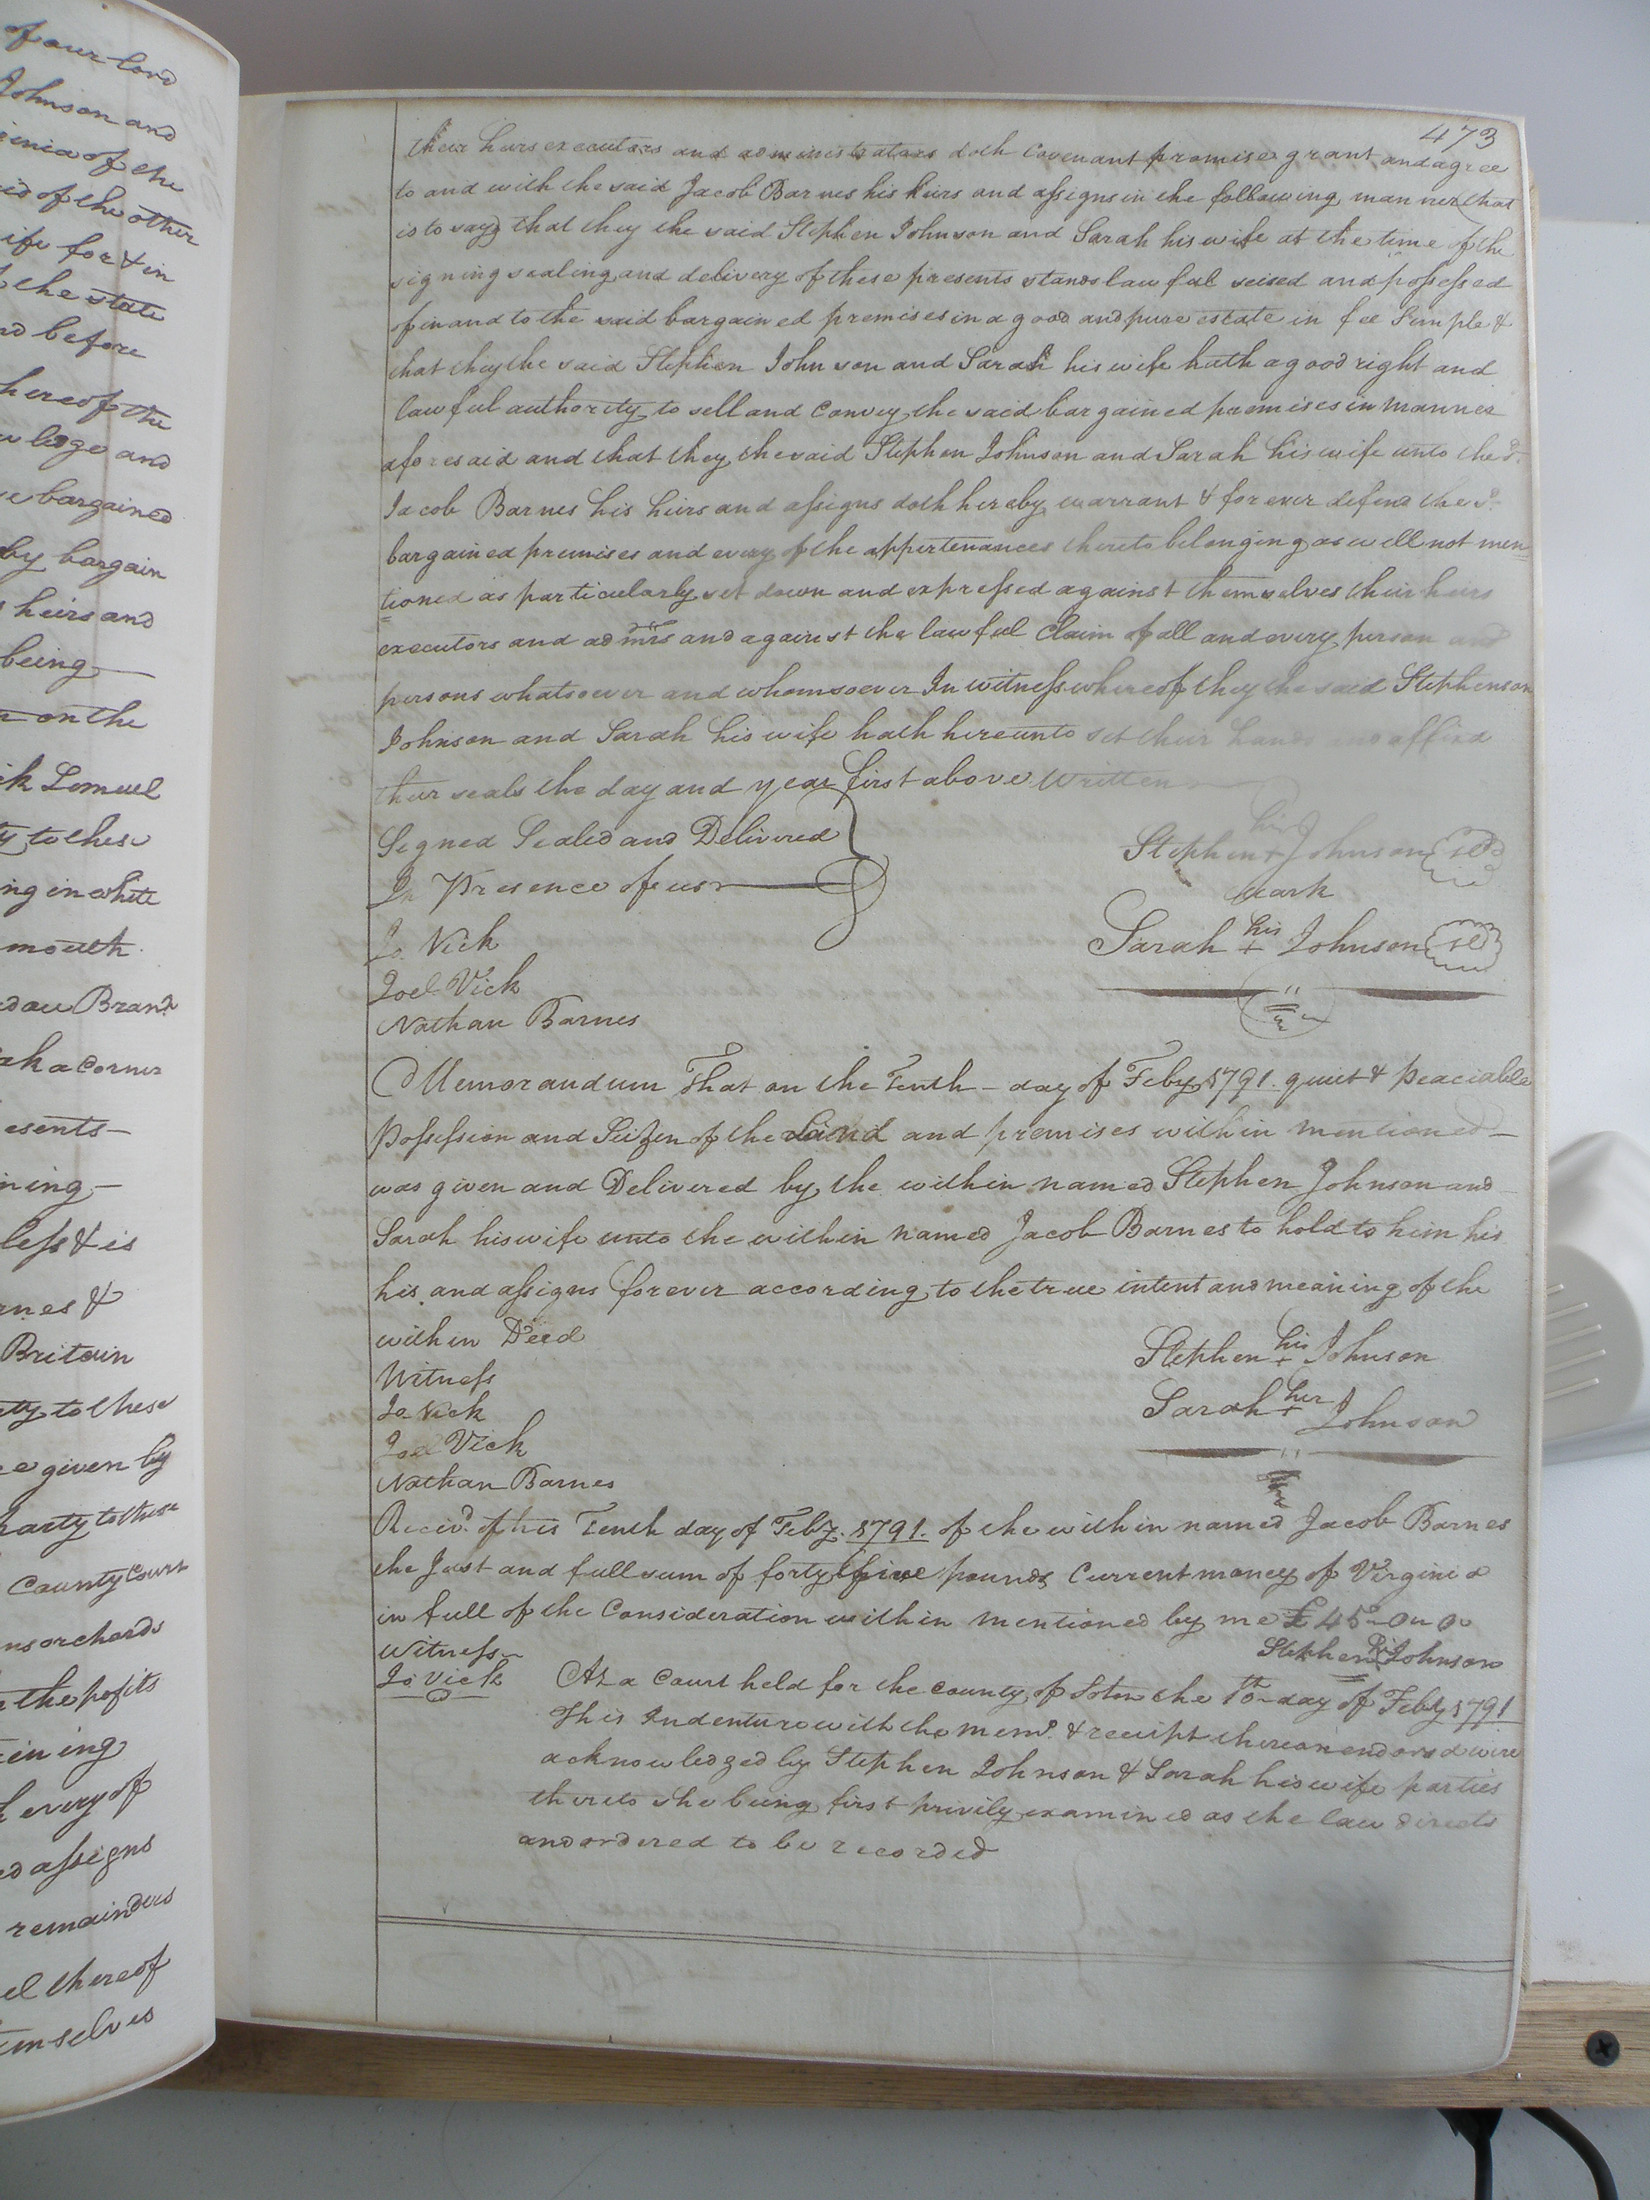 of our Lord
Johnson and
ginia of the
of the other
wife for & in
the state
before
hereof the
and
bargained
by bargain
heirs and
being
on the
Lemuel
to these
ing in white
mouth
Brank
ak a corner
esents
ning
less & is
rnes &
Britain
ty to these
given by
party to these
County Court
ns orchards
the profits
every of
assigns
remainders
thereof
emselves
473
their heirs executors and administrators doth covenant promise grant and agree
to and with the said Jacob Barnes his heirs and assigns in the following manner (that
is to say) that they the said Stephen Johnson and Sarah his wife at the time of the
signing sealing and delivery of these presents stands lawful seised and possessed
of in and to the said bargained premises in a good and pure estate in fee simple &
that they the said Stephen Johnson and Sarah his wife hath a good right and
lawful authority to sell and convey the said bargained premises in manner
aforesaid and that they the said Stephen Johnson and Sarah his wife unto the sd.
Jacob Barnes his heirs and assigns doth hereby warrant & forever defend the sd.
bargained premises and every of the appertenances thereto belonging as well not men
tioned as particularly set down and expressed against themselves their heirs
executors and admrs and against the lawful claim of all and every person and
persons whatsoever and whomsoever In witness whereof they the said Stephenson
Johnson and Sarah his wife hath hereunto set their hands and affixd
their seals the day and year first above written
Signed Sealed and Delivered
In Presence of us
Jo. Vick
Joel Vick
Nathan Barnes
his
Stephen + Johnson sed
mark
Sarah his + Johnson sed
Memorandum That on the Tenth day of Feby 1791. quiet & peaciable
Possession and Seizen of the Land and premises within mentioned
was given and Delivered by the within named Stephen Johnson and
Sarah his wife unto the within named Jacob Barnes to hold to him his
his and assigns forever according to the true intent and meaning of the
within Deed
Witness
Jo Vick
Joel Vick
Nathan Barnes
Stephen his + Johnson
Sarah her + Johnson
Receivd. of his Tenth day of Feby. 1791. of the within named Jacob Barnes
the Just and full sum of forty five pounds Current money of Virginia
in full of the Consideration within mentioned by me £45-0-0
Witness
Jo Vick
Stephen his Johnson
At a Court held for the County of Soton the 10th day of Feby 1791
This Indenture with the memd. & receipt thereon endorsd were
acknowledged by Stephen Johnson & Sarah his wife parties
thereto she being first privily examined as the law directs
and ordered to be recorded